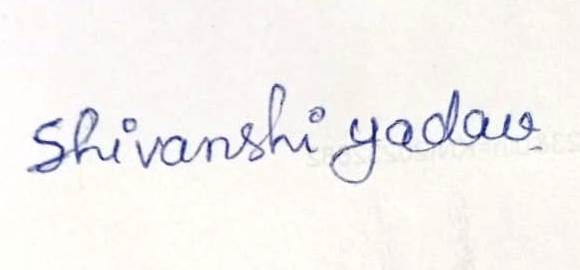 Shivanshi yadav